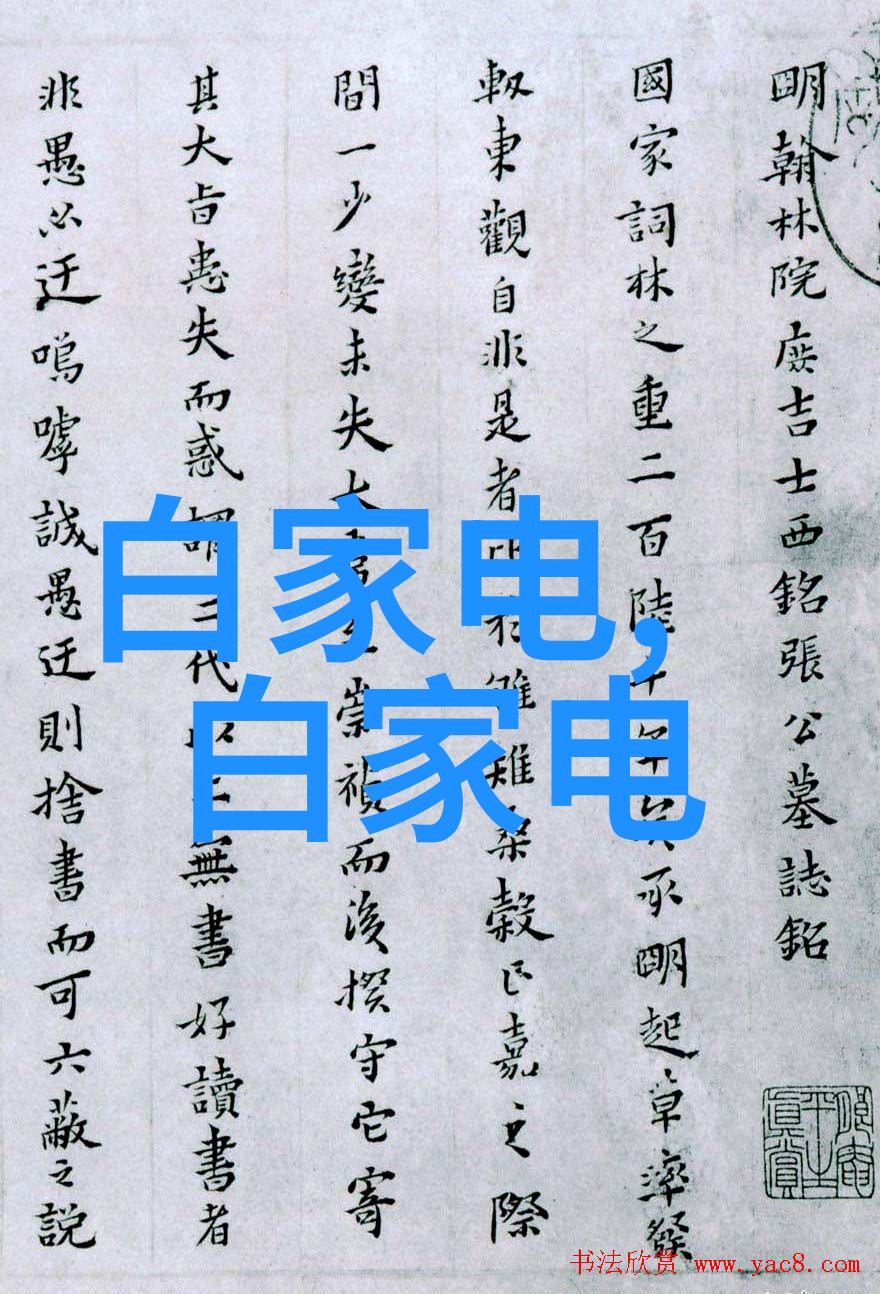 明翰林院庶吉士西銘張公墓誌銘
國家詞林之重二百陸十年矣承明起草率發
軔東觀自非是者雖桑穀正嘉之際
間一少變未失大崇禎而後揆守它寄
其大旨悉失而惑謂三代以上無書好讀書者
非愚必迂嗚嘑誠愚迂則捨書而可六蔽之説
白家电,
白家电
书法欣赏 www.yac8.com